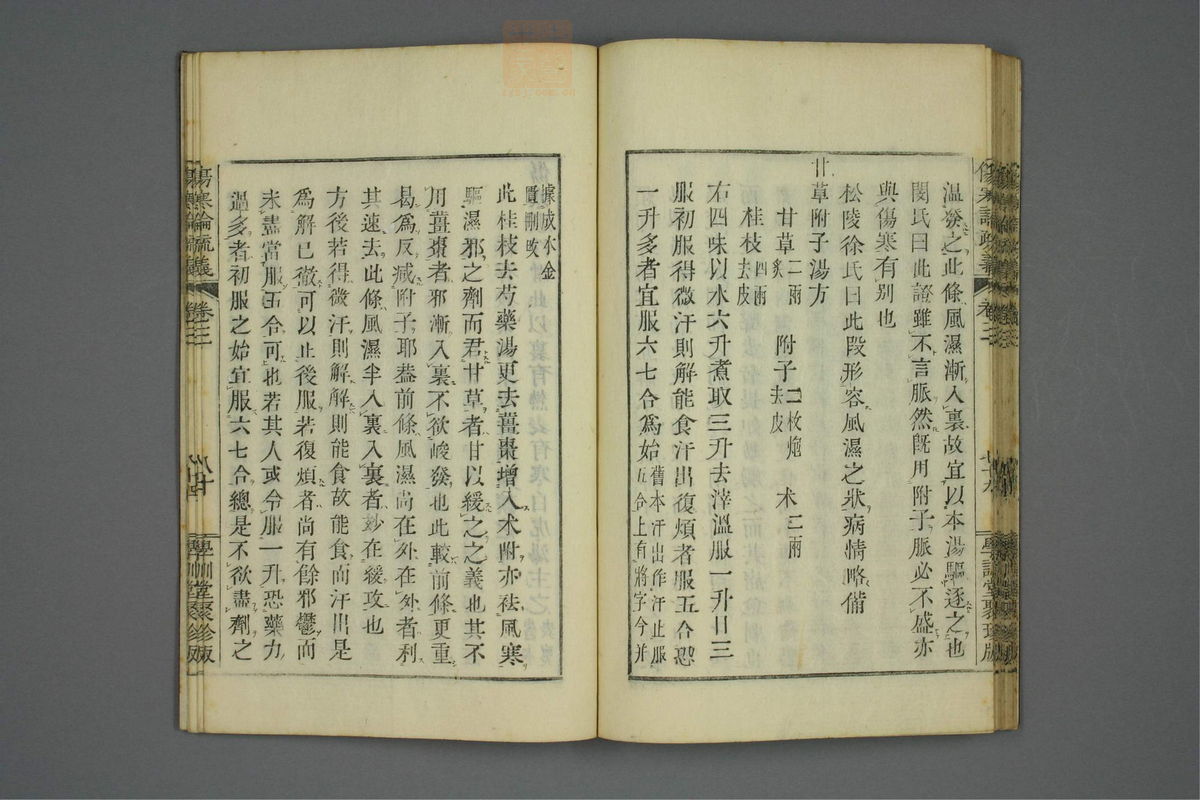 溫發之此條風濕漸入裏故宜以本湯驅逐之也
閔氏曰此證雖不言脈然既用附子脈必不盛亦
與傷寒有別也
松陵徐氏曰此段形容風濕之狀病情略備
甘草附子湯方
甘草二兩炙 附子二枚炮去皮 朮二兩
桂枝四兩去皮
右四味以水六升煮取三升去滓溫服一升日三
服初服得微汗則解能食汗出復煩者服五合恐
一升多者宜服六七合為始舊本汗出作汗止服五合上有將字今并
據成本金匱刪改
此桂枝去芍藥湯更去薑棗增入朮附亦祛風寒
驅濕邪之劑而君甘草者甘以緩之之義也其不
用薑棗者邪漸入裏不欲峻發也此較前條更重
曷為反減附子耶蓋前條風濕尚在外在外者利
其速去此條風濕半入裏入裏者妙在緩攻也
方後若得微汗則解解則能食故能食而汗出是
為解已徹可以止後服若復煩者尚有餘邪鬱而
未盡當服五合可也若其人或令服一升恐藥力
過多者初服之始宜服六七合總是不欲盡劑之
傷寒論疏義
卷三
學訓堂聚珍版